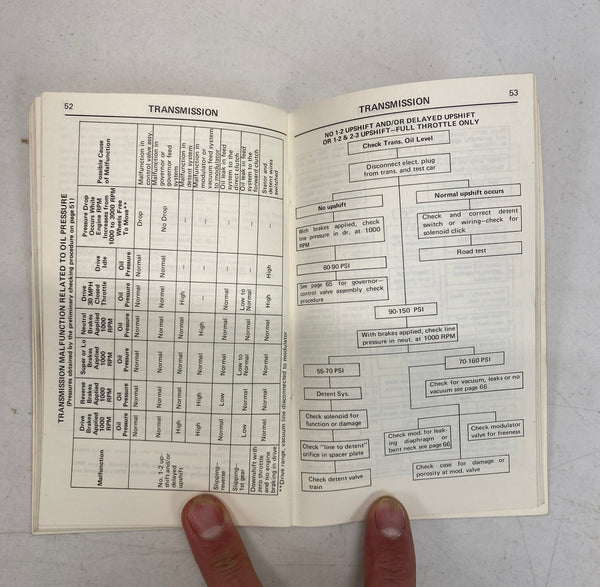 52
TRANSMISSION
TRANSMISSION MALFUNCTION RELATED TO OIL PRESSURE
(Pressures obtained by the preliminary checking procedure on page 51)
Malfunction
Drive
Brakes
Applied
1000
RPM
Reverse
Brakes
Applied
1000
RPM
Super or Lo
Brakes
Applied
1000
RPM
Neutral
Brakes
Applied
1000
RPM
Drive
30 MPH
Closed
Throttle
Drive
Idle
Pressure Drop
Occurs While
Engine RPM
Increases from
1000 to 3000 RPM
Wheels Free
To Move**
Possible Cause
of Malfunction
Oil
Pressure
Oil
Pressure
Oil
Pressure
Oil
Pressure
Oil
Pressure
Oil
Pressure
No. 1-2 up-
shift and/or
delayed
upshift
Normal Normal Normal Normal Normal Normal Drop
Malfunction in
control valve assy.
Normal Normal Normal Normal Normal Normal No Drop
Malfunction in
governor or
governor feed
system
High Normal Normal Normal High – –
Malfunction in
detent system
High High Normal High – – –
Malfunction in
modulator or
vacuum feed system
to modulator
Slipping–
reverse
Normal Low Normal Normal Normal – –
Oil leak in feed
system to the
direct clutch
Slipping–
1st gear
Low Normal Low to
Normal
Normal Low to
Normal
– –
Oil leak in feed
system to the
forward clutch
Downshift with
zero throttle
and no engine
braking in drive
Normal Normal Normal Normal High High –
Stator and
detent wires
switched
**Drive range, vacuum line disconnected to modulator
53
TRANSMISSION
NO 1-2 UPSHIFT AND/OR DELAYED UPSHIFT
OR 1-2 & 2-3 UPSHIFT–FULL THROTTLE ONLY
Check Trans. Oil Level
Disconnect elect. plug
from trans. and test car
No upshift
Normal upshift occurs
With brakes applied, check
line pressure in dr. at 1000
RPM
Check and correct detent
switch or wiring–check for
solenoid click
60-90 PSI
Road test
See page 65 for governor–
control valve assembly check
procedure
90-150 PSI
With brakes applied, check line
pressure in neut. at 1000 RPM
55-70 PSI
70-160 PSI
Detent Sys.
Check for vacuum, leaks or no
vacuum see page 66
Check solenoid for
function or damage
Check mod. for leak-
ing diaphragm or
bent neck see page 66
Check modulator
valve for freeness
Check "line to detent"
orifice in spacer plate
Check case for damage or
porosity at mod. valve
Check detent valve
train